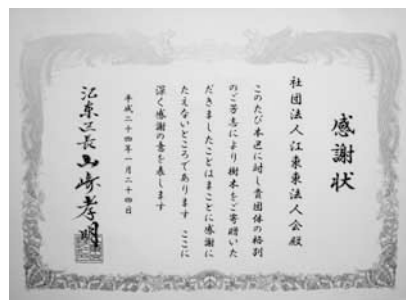 感謝状
社団法人江東東法人会殿
このたび本区に対し貴団体の格別
のご芳志により樹木をご寄贈いた
だきましたことはまことに感謝に
たえないところであります ここに
深く感謝の意を表します
平成二十四年一月二十四日
江東区長 山﨑孝明